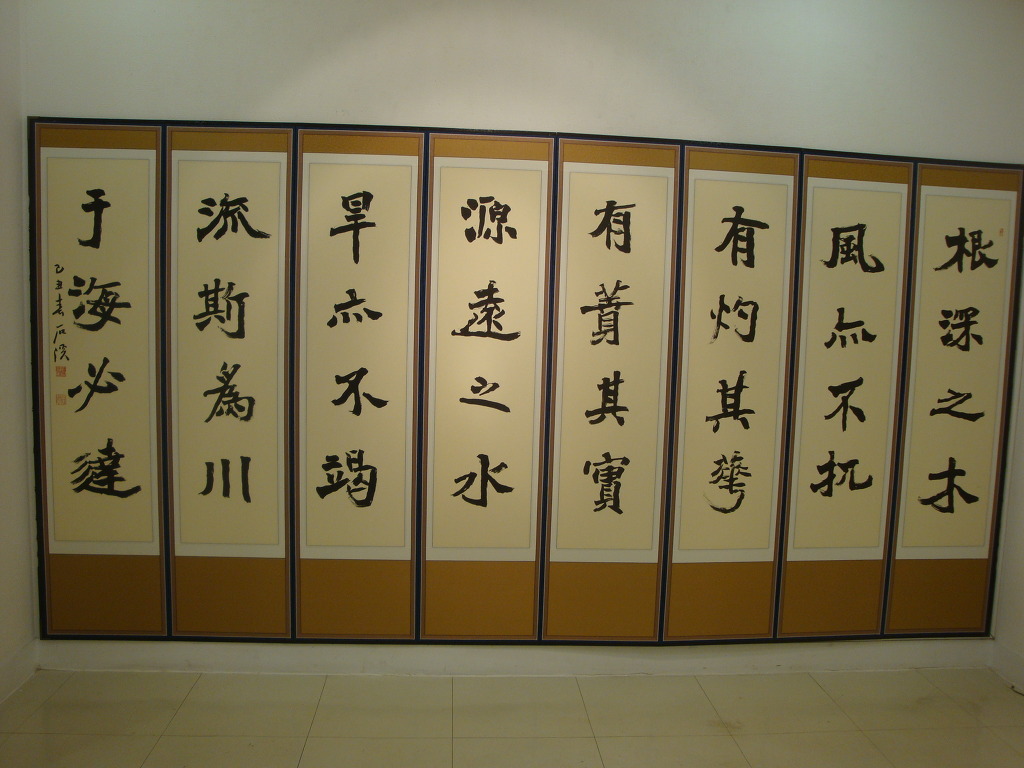 根深之木
風亦不扤
有灼其華
有蕡其實
源遠之水
旱亦不竭
流斯爲川
于海必達
乙丑春